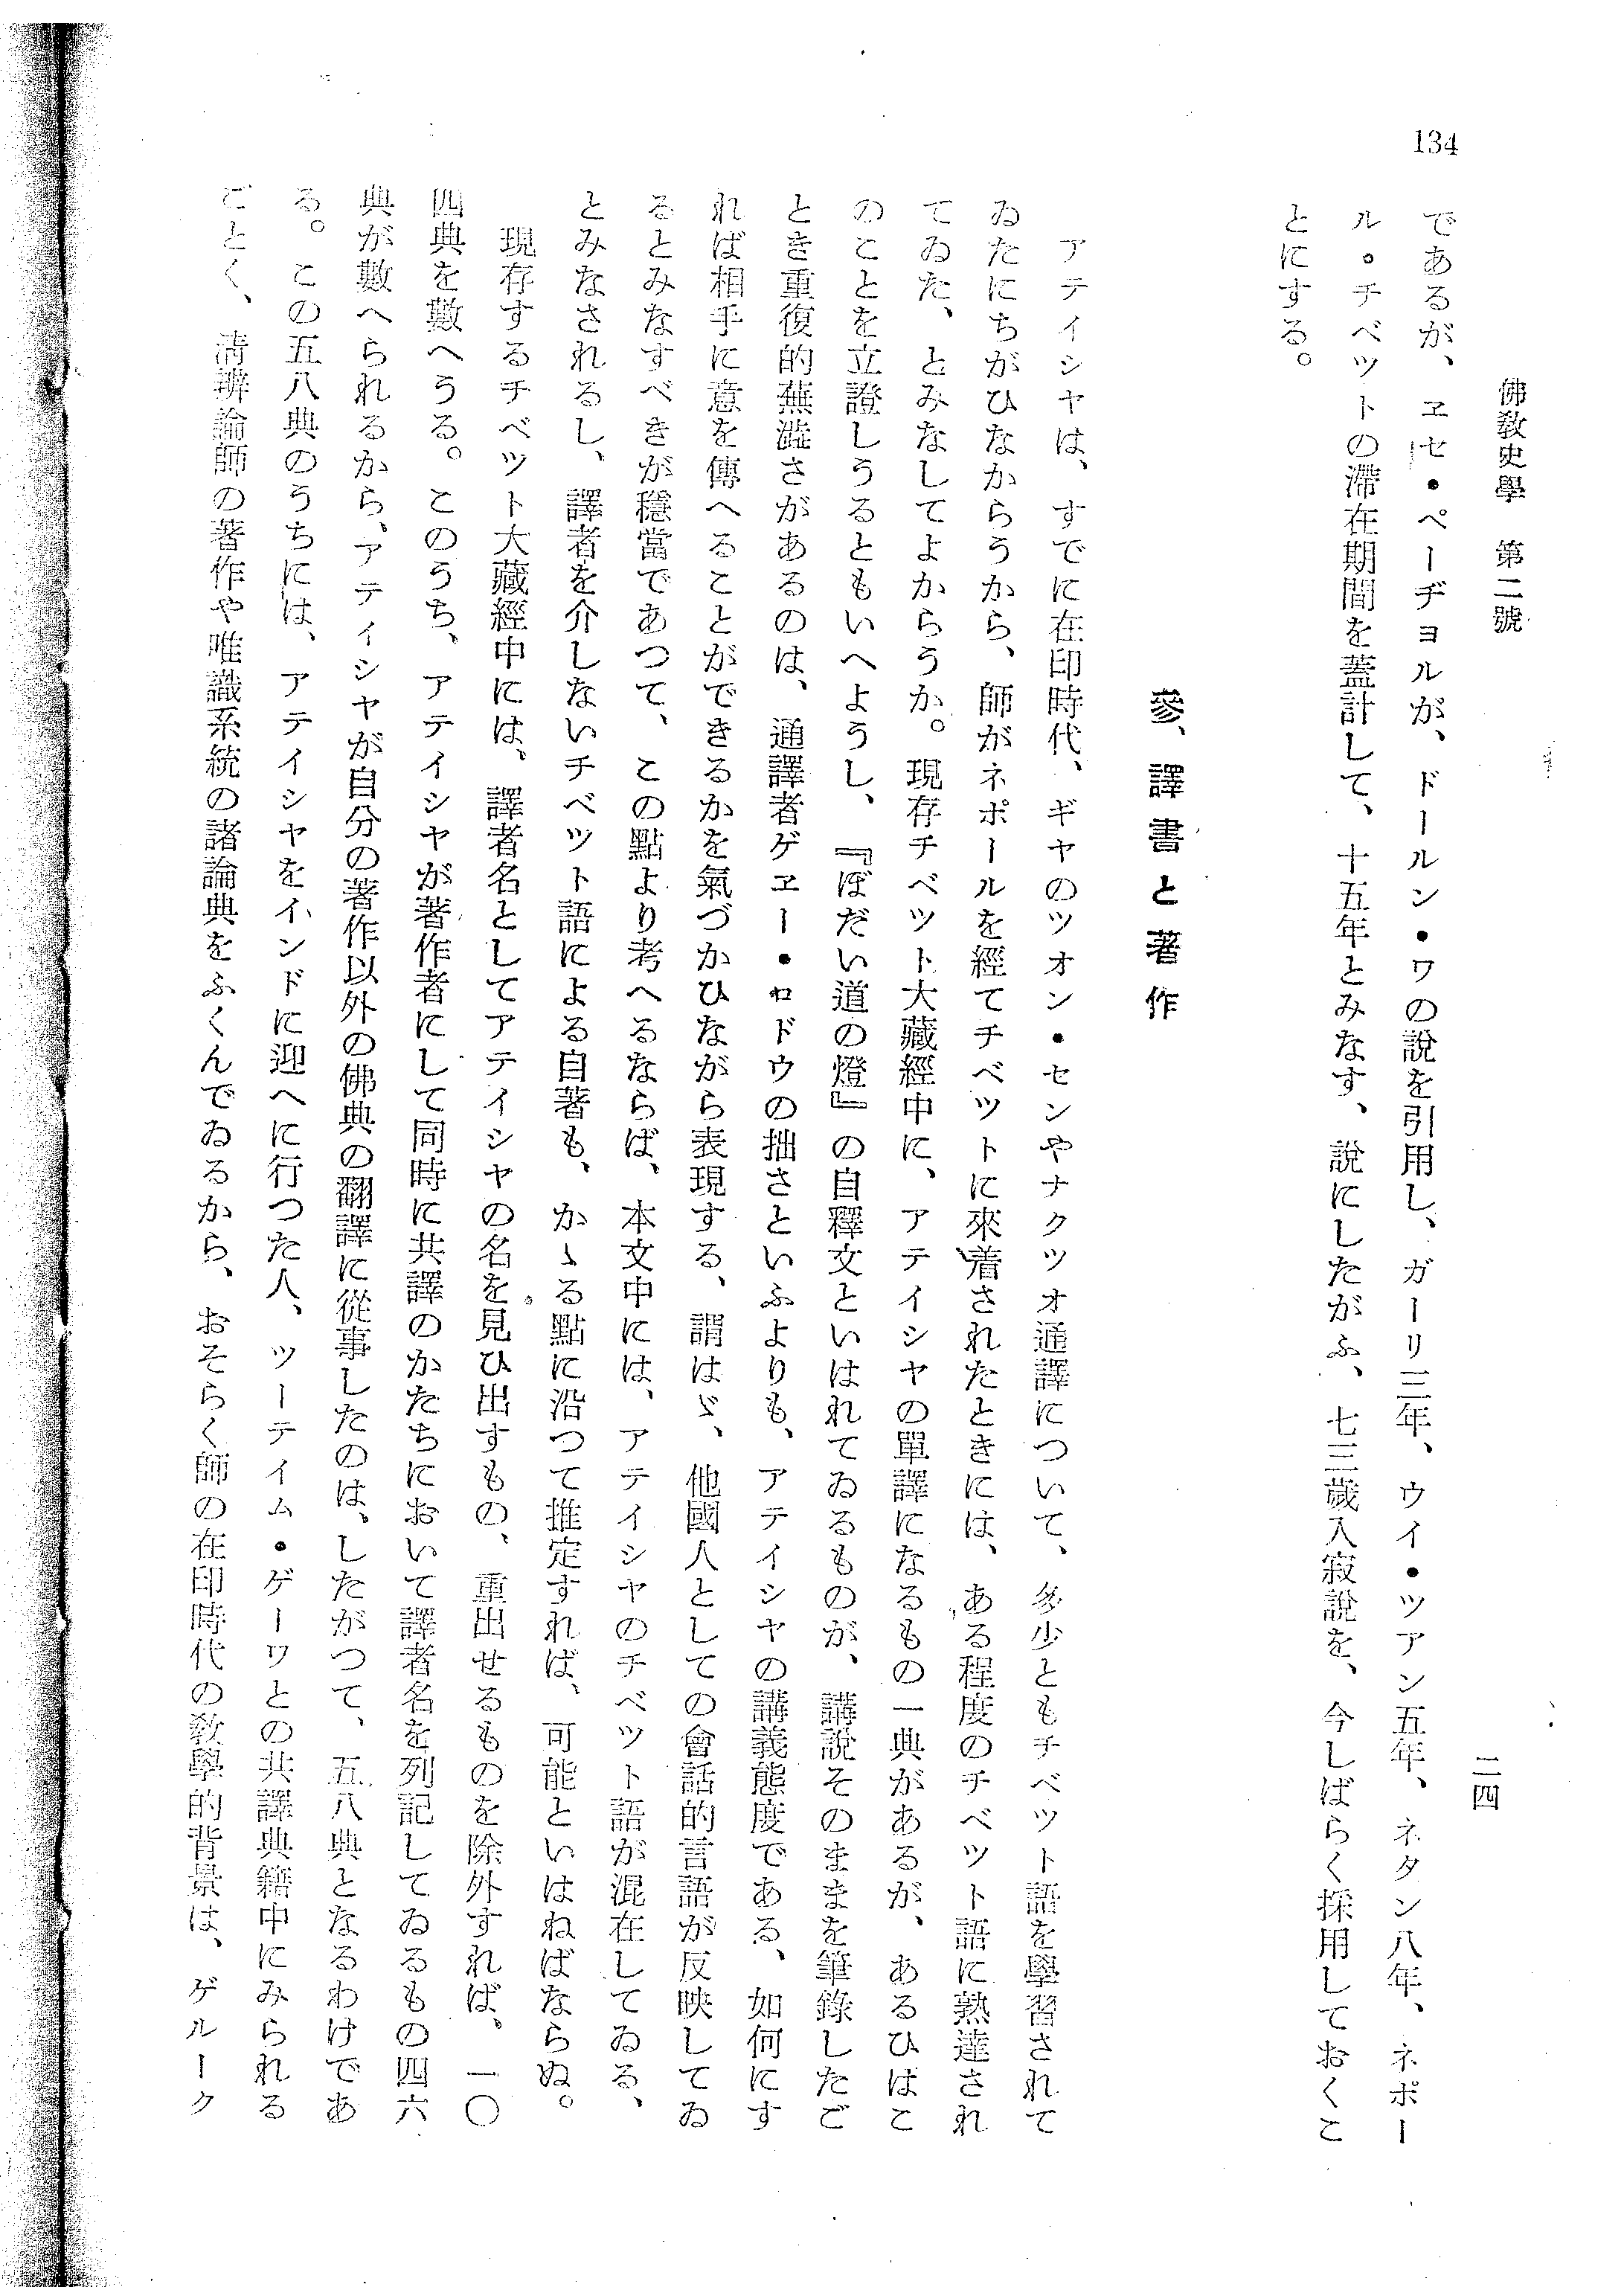 134
佛敎史學　第二號
二四
であるが、ヱセ・ペーヂョルが、ドールン・ワの說を引用し、ガーリ三年、ウイ・ツアン五年、ネタン八年、ネポー
ル・チベットの滯在期間を蓋計して、十五年とみなす、說にしたがふ、七三歲入寂說を、今しばらく採用しておくこ
とにする。
參、譯書と著作
アテイシヤは、すでに在印時代、ギヤのツオン・センやナクツオ通譯について、多少ともチベツト語を學習されて
ゐたにちがひなからうから、師がネポールを經てチベツトに來着されたときには、ある程度のチベツト語に熟達され
てゐた、とみなしてよからうか。現存チベツト大藏經中に、アテイシヤの單譯になるもの一典があるが、あるひはこ
のことを立證しうるともいへようし、『ぼだい道の燈』の自釋文といはれてゐるものが、講說そのままを筆錄したご
とき重復的蕪澁さがあるのは、通譯者ゲヱー・ロドウの拙さといふよりも、アテイシヤの講義態度である、如何にす
れば相手に意を傳へることができるかを氣づかひながら表現する、謂はゞ、他國人としての會話的言語が反映してゐ
るとみなすべきが穩當であつて、この點より考へるならば、本文中には、アテイシヤのチベツト語が混在してゐる、
とみなされるし、譯者を介しないチベツト語による自著も、かゝる點に沿つて推定すれば、可能といはねばならぬ。
現存するチベツト大藏經中には、譯者名としてアテイシヤの名を見ひ出すもの、重出せるものを除外すれば、一〇
四典を數へうる。このうち、アテイシヤが著作者にして同時に共譯のかたちにおいて譯者名を列記してゐるもの四六
典が數へられるから、アテイシヤが自分の著作以外の佛典の翻譯に從事したのは、したがつて、五八典となるわけであ
る。この五八典のうちには、アテイシヤをインドに迎へに行つた人、ツーテイム・ゲーワとの共譯典籍中にみられる
ごとく、淸辨論師の著作や唯識系統の諸論典をふくんでゐるから、おそらく師の在印時代の敎學的背景は、ゲルーク